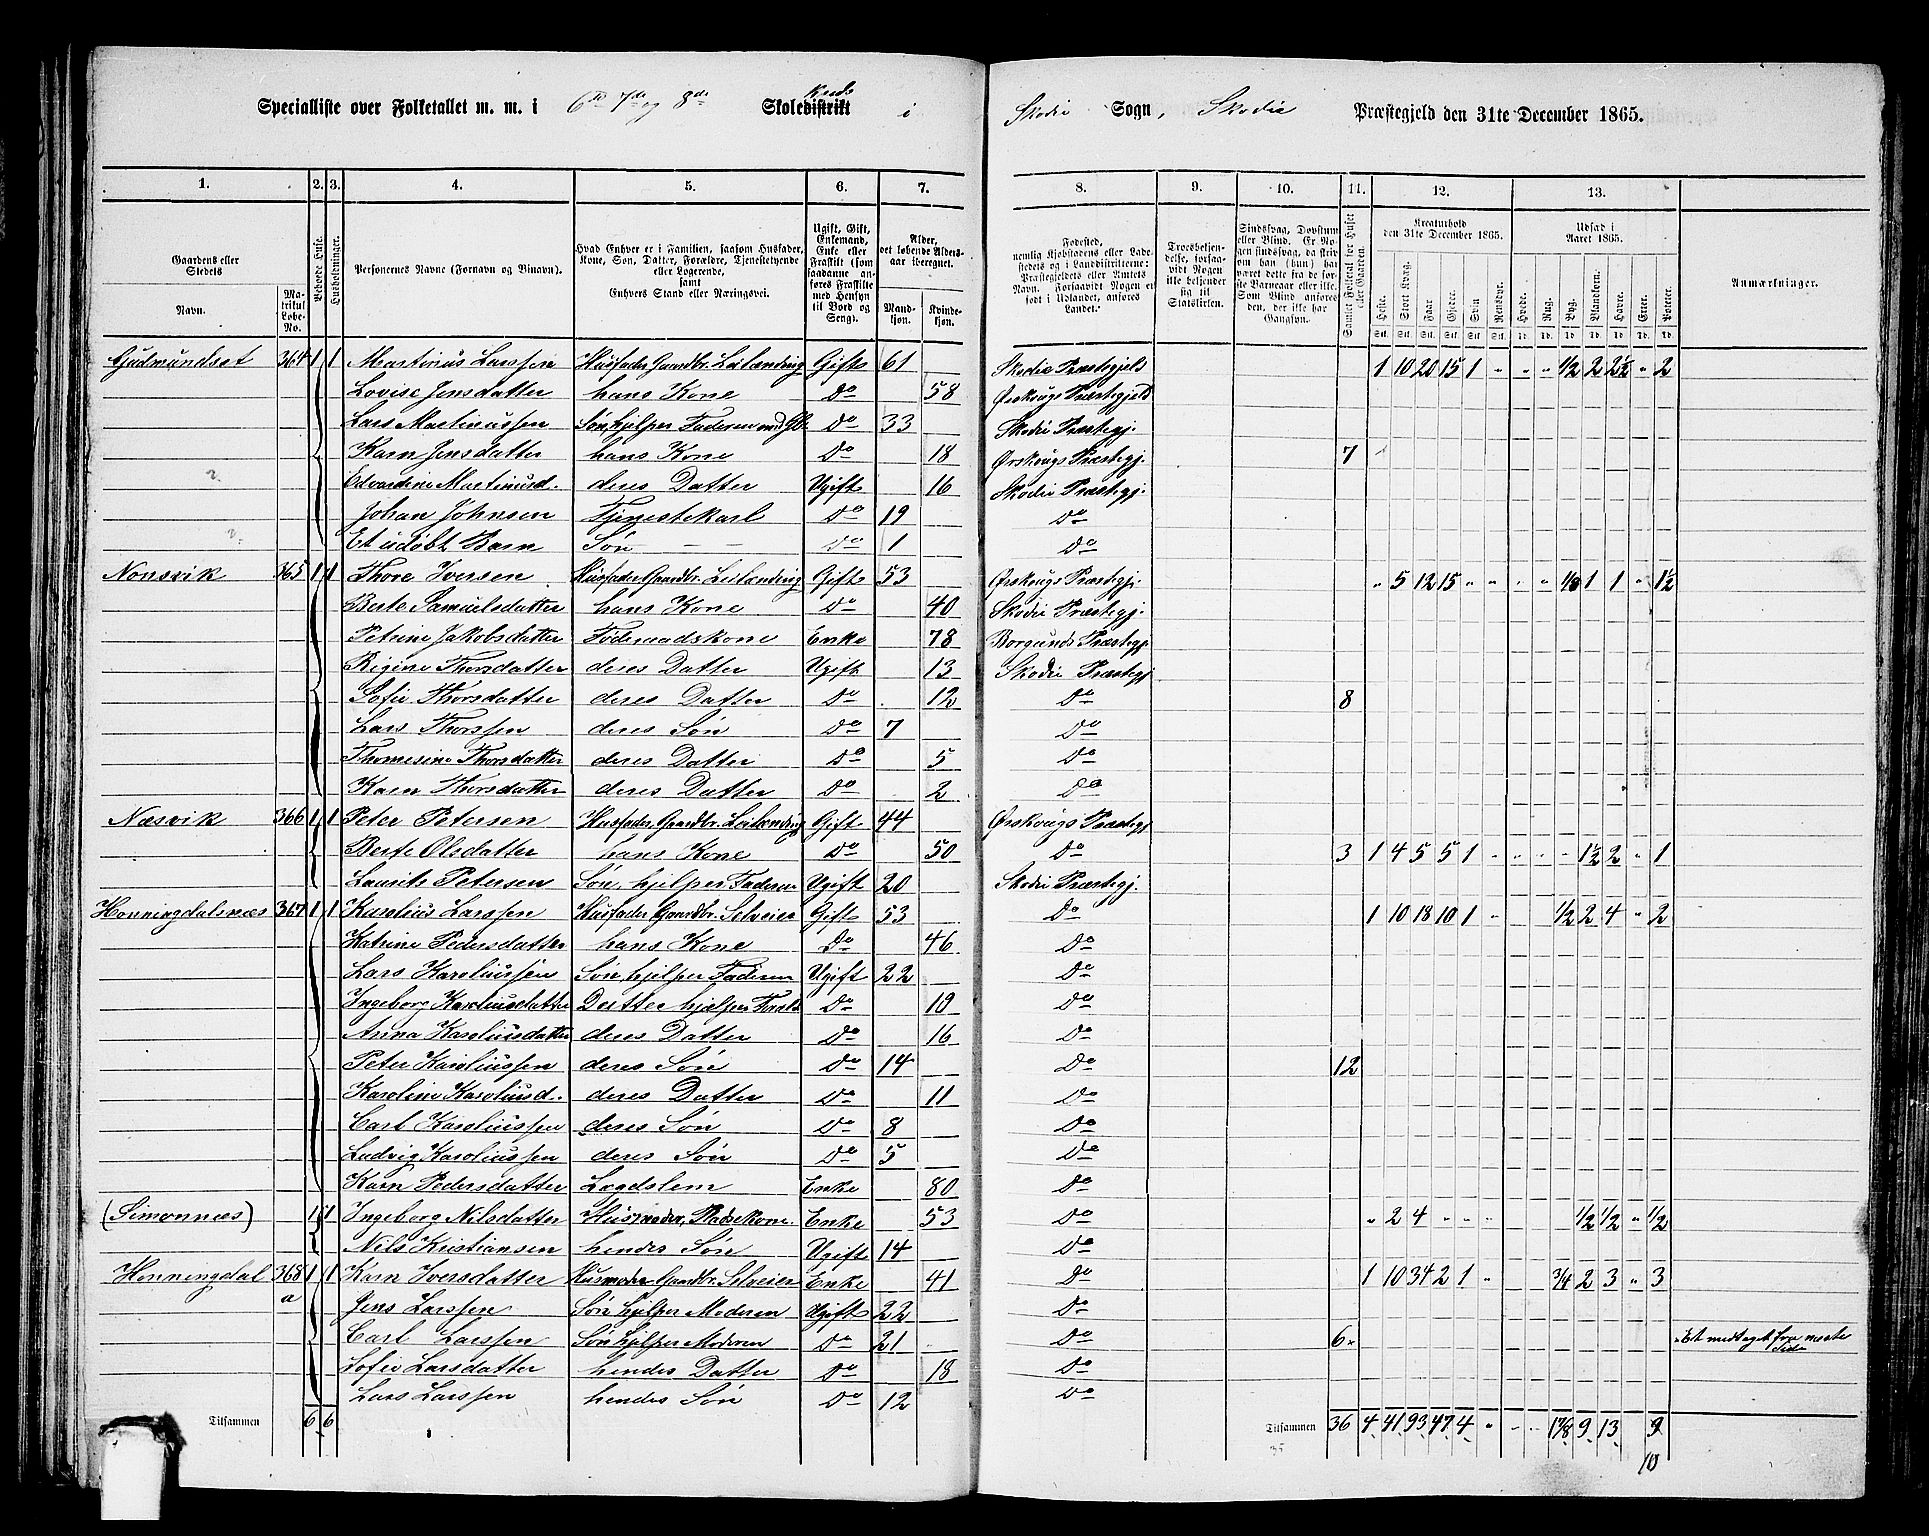 Specialliste over Folketallet m. m. i 6te 7de og 8de Skoledistrikt Kreds i Skodie Sogn, Skodie Præstegjeld den 31te December 1865.
1. 2. 3. 4. 5. 6. 7. 8. 9. 10. 11. 12. 13.
Gaardens eller Stedets Navn. Matrikul Løbe-No. Beboede Huse. Husholdninger. Personernes Navne (Fornavn og Tilnavn). Hvad Enhver er i Familien, saasom Husfader, Kone, Søn, Datter, Forældre, Tjenestetyende eller Logerende, samt Enhvers Stand eller Næringsvei. Ugift, Gift, Enkemand, Enke eller Fraskilt Alder, det løbende Aldersaar iberegnet. Mandkjøn. Kvindekjøn. Fødested, Kreaturhold den 31te December 1865. Udsæd i Aaret 1865. Anmærkninger.
Heste. Stort Kvæg. Faar. Gjeder. Svin. Rensdyr. Hvede. Rug. Byg. Blandkorn. Havre. Erter. Poteter.
Gudmundset 364 1 1 Martinus Larssen Husfader Gaardbr. Leilænding Gift 61 Skodie Præstegjeld 1 10 20 15 1 " " " 1/2 2 2 1/2 " 2
Lovise Jensdatter hans Kone Do 58 Ørskougs Præstegjeld
Lars Martinussen Søn, hjelper Faderen med Gb. Do 33 Skodie Præstegj.
Karn Jensdatter hans Kone Do 18 Ørskougs Præstegj. 7
Edvardine Martinusd. deres Datter Ugift 16 Skodie Præstegj.
Johan Johnsen Tjenestekarl Do 19 Do
Et udøbt Barn Søn — — Do 1 Do
Nonsvik 365 1 1 Thore Iversen Husfader Gaardbr. Leilænding Gift 53 Ørskougs Præstegj. " 5 12 15 " " " " 1/8 1 1 " 1 1/2
Berte Samuelsdatter hans Kone Do 40 Skodie Præstegj.
Petrine Jakobsdatter Føderaadskone Enke 78 Borgunds Præstegj.
Rigine Thorsdatter deres Datter Ugift 13 Skodie Præstegj
Sofie Thorsdatter deres Datter Do 12 Do 8
Lars Thorssen deres Søn Do 7 Do
Thomesine Thorsdatter deres Datter Do 5 Do
Karn Thorsdatter deres Datter Do 2 Do
Næsvik 366 1 1 Peter Petersen Husfader, Gaardbr. Leilænding Gift 44 Ørskougs Præstegj
Berte Olsdatter hans Kone Do 50 Do 3 1 4 5 5 1 " " " " 1 1/2 2 " 1
Laurits Petersen Søn, hjelper Faderen Ugift 20 Skodie Præstegj.
Honningdalsnæs 367 1 1 Karolius Larssen Husfader Gaardbr. Selveier Gift 53 Do 1 10 18 10 1 " 1/2 2 4 " 2
Katrine Pedersdatter hans Kone Do 46 Do
Lars Karoliussen Søn, hjelper Faderen Ugift 22 Do
Ingeborg Karoliusdatter Datter hjelper Foræld Do 19 Do
Anna Karoliusdatter deres Datter Do 16 Do
Peter Karoliussen deres Søn Do 14 Do 12
Karoline Karoliusd. deres Datter Do 11 Do
Carl Karoliussen deres Søn Do 8 Do
Ludvig Karoliussen deres Søn Do 5 Do
Karn Pedersdatter Lægdslem Enke 80 Do
(Simonnæs) 1 1 Ingeborg Nilsdatter Husmoder, Pladsekone. Enke 53 Do " 2 4 " " " 1/2 1/2 " 1/2
Nils Kristiansen hendes Søn Ugift 14 Do
Honningdal 368 a 1 1 Karn Iversdatter Husmoder Gaardbr. Selveier Enke 41 Do 1 10 34 2 1 " 3/4 2 3 " 3
Jens Larssen Søn hjelper Moderen Ugift 22 Do
Carl Larssen Søn hjelper Moderen Do 21 Do 6 " Et medtaget fra næste Side
Sofie Larsdatter hendes Datter Do 18 Do
Lars Larssen hendes Søn Do 12 Do
Tilsammen 6 6 Tilsammen 36 4 41 93 47 4 " " " 1 7/8 9 13 9
35 10